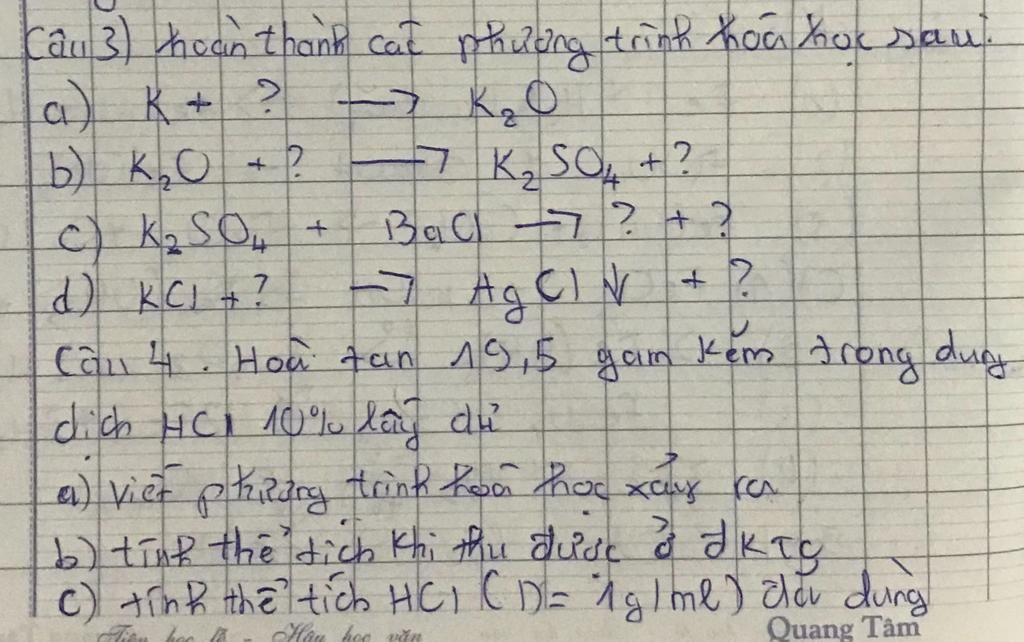 Câu 3) hoàn thành các phương trình hoá học sau:
a) K + ? → K₂O
b) K₂O + ? → K₂SO₄ + ?
c) K₂SO₄ + BaCl → ? + ?
d) KCl + ? → AgCl ↓ + ?
Câu 4. Hoà tan 19,5 gam kẽm trong dung
dịch HCl 10% lấy dư
a) viết phương trình hoá học xảy ra
b) tính thể tích khí thu được ở đKTC
c) tính thể tích HCl (D = 1g/ml) đã dùng
Tiên học lễ - Hậu học văn Quang Tâm